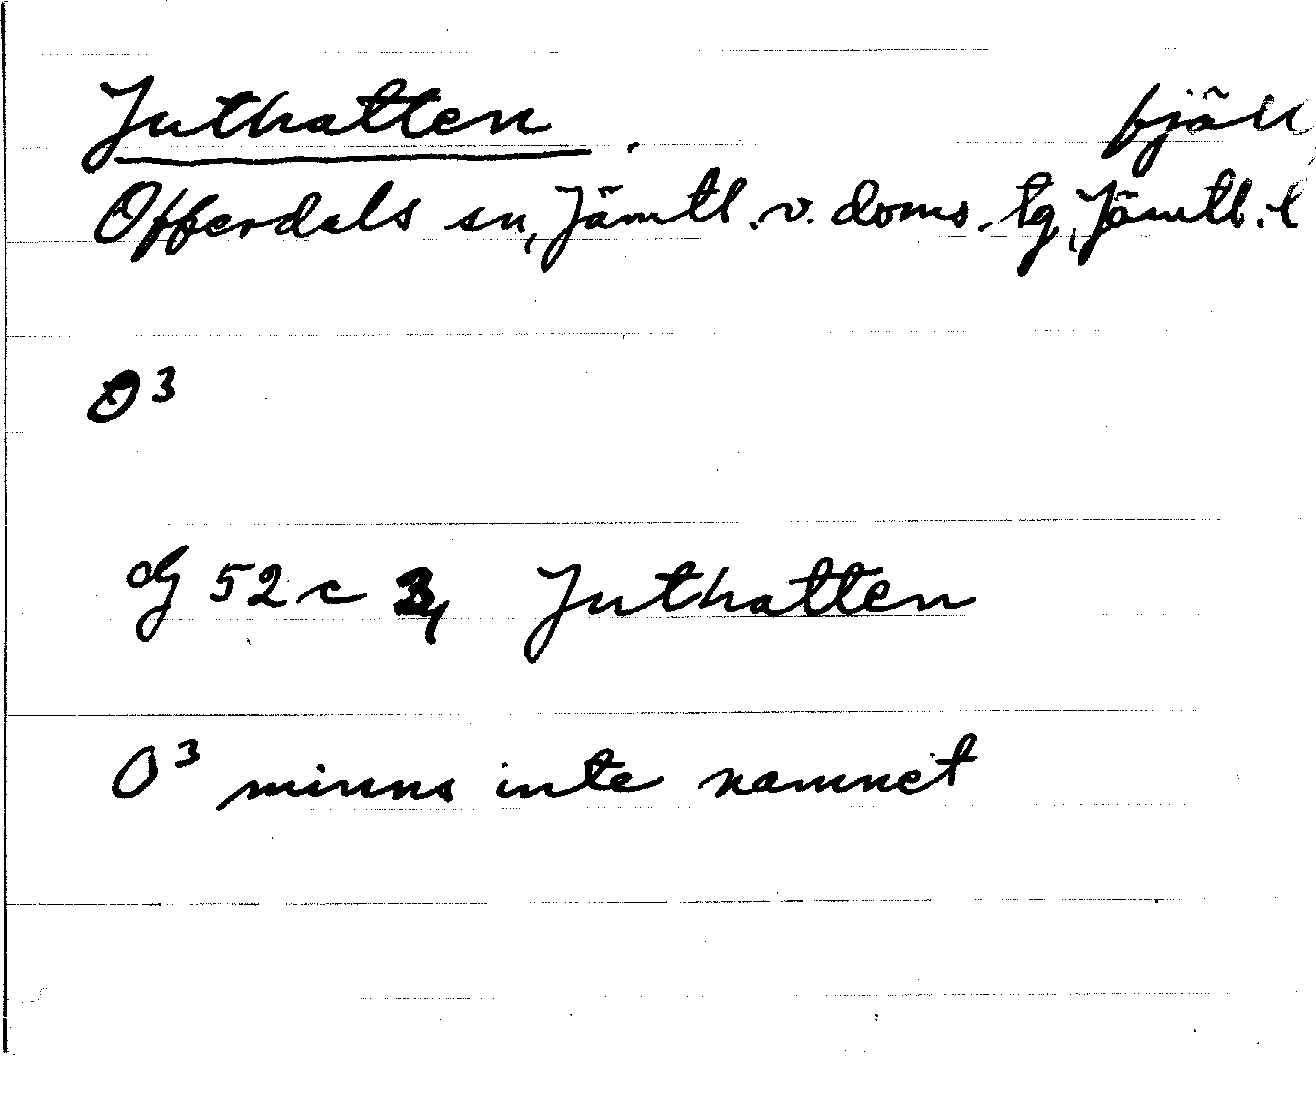 Juthatten. fjäll
Offerdals sn, Jämtl. v. doms. tg, Jämtl. l
O³
dG 52 c 3, Juthatten
O³ minns inte namnet